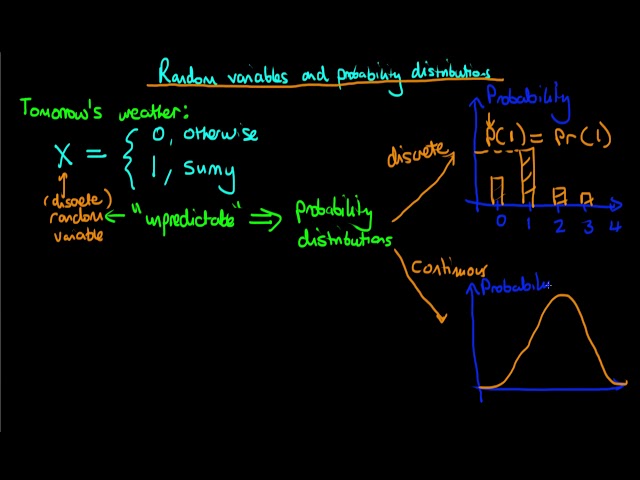 Random variables and probability distributions
Tomorrow's weather:
X = { 0, otherwise
1, sunny
(discrete)
random
variable
← "unpredictable" ⇒ probability
distributions
discrete
Probability
P(1) = Pr(1)
0 1 2 3 4
Continuous
Probabili